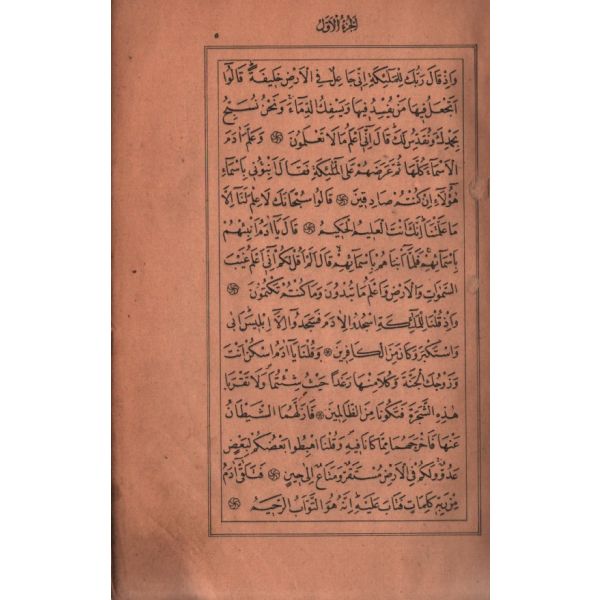 الجزء الاول
٥
وَاِذْ قَالَ رَبُّكَ لِلْمَلٰٓئِكَةِ اِنّٖى جَاعِلٌ فِى الْاَرْضِ خَلٖيفَةًۜ قَالُٓوا
اَتَجْعَلُ فٖيهَا مَنْ يُفْسِدُ فٖيهَا وَيَسْفِكُ الدِّمَٓاءَۚ وَنَحْنُ نُسَبِّحُ
بِحَمْدِكَ وَنُقَدِّسُ لَكَۜ قَالَ اِنّٖٓى اَعْلَمُ مَا لَا تَعْلَمُونَ ۞ وَعَلَّمَ اٰدَمَ
الْاَسْمَٓاءَ كُلَّهَا ثُمَّ عَرَضَهُمْ عَلَى الْمَلٰٓئِكَةِ فَقَالَ اَنْبِؤُنٖى بِاَسْمَٓاءِ
هٰٓؤُلَٓاءِ اِنْ كُنْتُمْ صَادِقٖينَ ۞ قَالُوا سُبْحَانَكَ لَا عِلْمَ لَنَٓا اِلَّا
مَا عَلَّمْتَنَاۜ اِنَّكَ اَنْتَ الْعَلٖيمُ الْحَكٖيمُ ۞ قَالَ يَٓا اٰدَمُ اَنْبِئْهُمْ
بِاَسْمَٓائِهِمْۚ فَلَمَّٓا اَنْبَاَهُمْ بِاَسْمَٓائِهِمْۙ قَالَ اَلَمْ اَقُلْ لَكُمْ اِنّٖٓى اَعْلَمُ غَيْبَ
السَّمٰوَاتِ وَالْاَرْضِ وَاَعْلَمُ مَا تُبْدُونَ وَمَا كُنْتُمْ تَكْتُمُونَ ۞
وَاِذْ قُلْنَا لِلْمَلٰٓئِكَةِ اسْجُدُوا لِاٰدَمَ فَسَجَدُٓوا اِلَّٓا اِبْلٖيسَۜ اَبٰى
وَاسْتَكْبَرَ وَكَانَ مِنَ الْكَافِرٖينَ ۞ وَقُلْنَا يَٓا اٰدَمُ اسْكُنْ اَنْتَ
وَزَوْجُكَ الْجَنَّةَ وَكُلَا مِنْهَا رَغَدًا حَيْثُ شِئْتُمَا وَلَا تَقْرَبَا
هٰذِهِ الشَّجَرَةَ فَتَكُونَا مِنَ الظَّالِمٖينَ ۞ فَاَزَلَّهُمَا الشَّيْطَانُ
عَنْهَا فَاَخْرَجَهُمَا مِمَّا كَانَا فٖيهِ وَقُلْنَا اهْبِطُوا بَعْضُكُمْ لِبَعْضٍ
عَدُوٌّۚ وَلَكُمْ فِى الْاَرْضِ مُسْتَقَرٌّ وَمَتَاعٌ اِلٰى حٖينٍ ۞ فَتَلَقّٰٓى اٰدَمُ
مِنْ رَبِّهٖ كَلِمَاتٍ فَتَابَ عَلَيْهِۜ اِنَّهُ هُوَ التَّوَّابُ الرَّحٖيمُ ۞